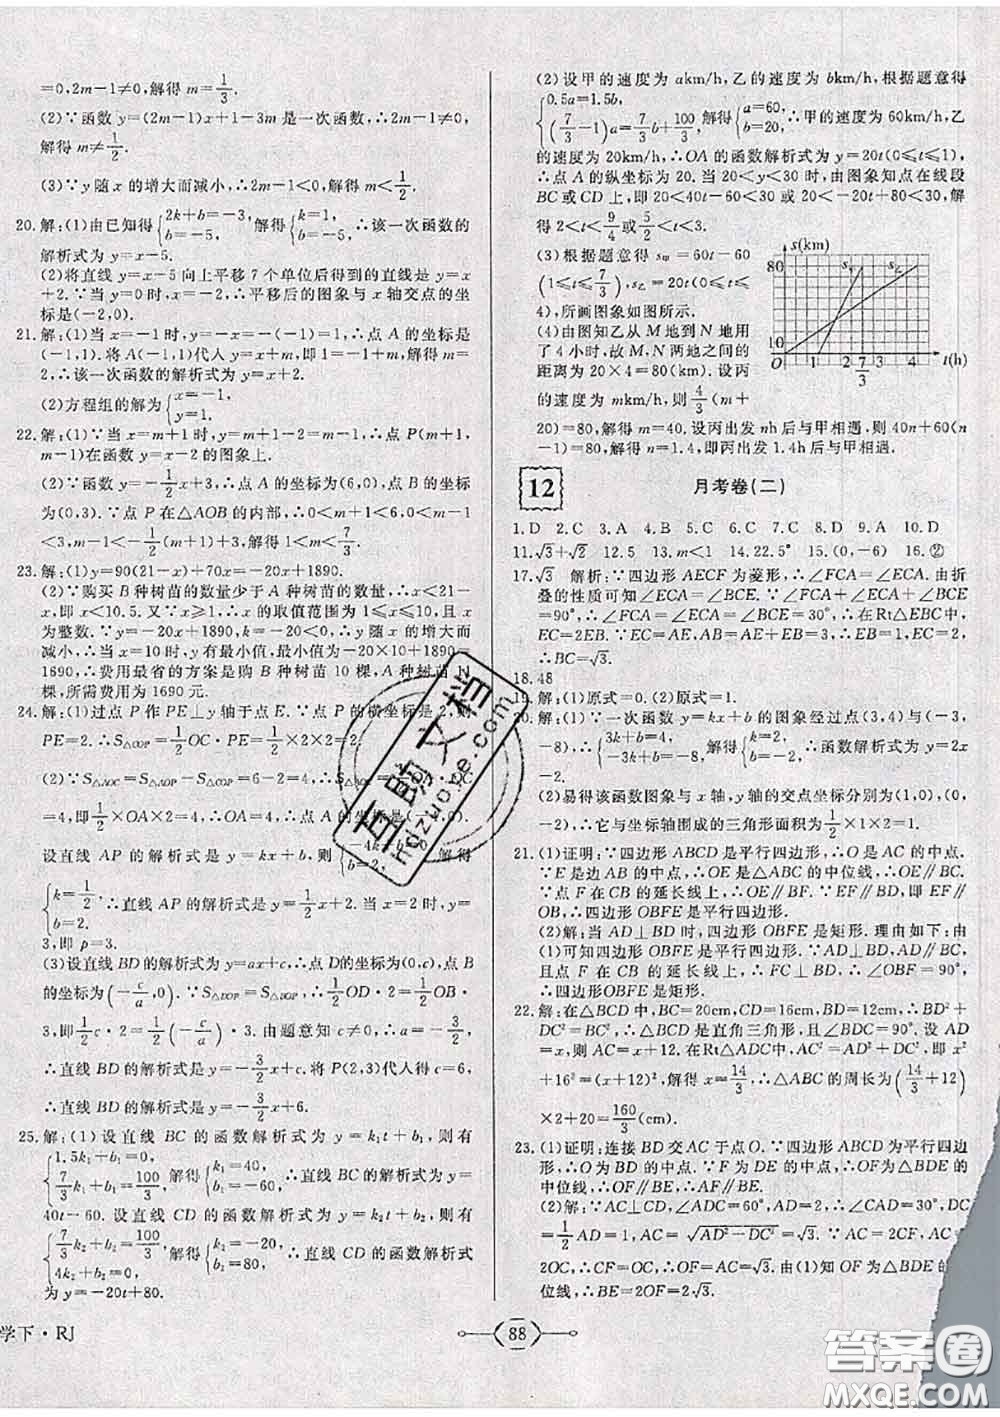 =0,2m-1≠0,解得 m=1/3.
(2)∵函数 y=(2m-1)x+1-3m 是一次函数,∴2m-1≠0,
解得 m≠1/2.
(3)∵y 随 x 的增大而减小,∴2m-1<0,解得 m<1/2.
20.解:(1)由已知得{2k+b=-3, b=-5, 解得{k=1, b=-5, ∴该一次函数的
解析式为 y=x-5.
(2)将直线 y=x-5 向上平移 7 个单位后得到的直线是 y=x
+2.∵当 y=0 时,x=-2,∴平移后的图象与 x 轴交点的坐
标是(-2,0).
21.解:(1)当 x=-1 时,y=-x=-(-1)=1,∴点 A 的坐标是
(-1,1).将 A(-1,1)代入 y=x+m,即 1=-1+m,解得 m=
2,∴该一次函数的解析式为 y=x+2.
(2)方程组的解为{x=-1, y=1.
22.解:(1)∵当 x=m+1 时,y=m+1-2=m-1,∴点 P(m+1,m-
1)在函数 y=x-2 的图象上.
(2)∵函数 y=-1/2x+3,∴点 A 的坐标为(6,0),点 B 的坐标为
(0,3).∵点 P 在△AOB 的内部,∴0<m+1<6,0<m-1
<3,m-1<-1/2(m+1)+3,解得 1<m<7/3.
23.解:(1)y=90(21-x)+70x=-20x+1890.
(2)∵购买 B 种树苗的数量少于 A 种树苗的数量,∴x<21-
x,即 x<10.5.又∵x≥1,∴x 的取值范围为 1≤x≤10,且 x
为整数.∵y=-20x+1890,k=-20<0,∴y 随 x 的增大而
减小,∴当 x=10 时,y 有最小值,最小值为-20×10+1890=
1690,∴费用最省的方案是购 B 种树苗 10 棵,A 种树苗 11
棵,所需费用为 1690 元.
24.解:(1)过点 P 作 PE⊥y 轴于点 E.∵点 P 的横坐标是 2,则
PE=2.∴S△COP=1/2OC·PE=1/2×2×2=2.
(2)∵S△AOC=S△AOP-S△COP=6-2=4,∴S△AOC=1/2OA·OC
=4,即1/2×OA×2=4,∴OA=4,∴A(-4,0).
设直线 AP 的解析式为 y=kx+b,则{-4k+b=0, b=2, 解得
{k=1/2, b=2. ∴直线 AP 的解析式为 y=1/2x+2.当 x=2 时,y=
3,即 p=3.
(3)设直线 BD 的解析式为 y=ax+c,∴点 D的坐标为(0,c),点 B
的坐标为(-c/a,0).∵S△BOP=S△DOP,∴1/2OD·2=1/2OB·
3,即1/2c·2=1/2(-c/a)·3.由题意知 c≠0,∴a=-3/2,
∴直线 BD 的解析式是 y=-3/2x+c.将 P(2,3)代入得 c=6,
∴直线 BD 的解析式是 y=-3/2x+6.
25.解:(1)设直线 BC 的函数解析式为 y=k₁t+b₁,则有
{1.5k₁+b₁=0, 7/3k₁+b₁=100/3, 解得{k₁=40, b₁=-60, ∴直线 BC 的解析式为 y=
40t-60.设直线 CD 的函数解析式为 y=k₂t+b₂,则有
{7/3k₂+b₂=100/3, 4k₂+b₂=0, 解得{k₂=-20, b₂=80, ∴直线 CD 的函数解析式
为 y=-20t+80.
(2)设甲的速度为 akm/h,乙的速度为 bkm/h,根据题意得
{0.5a=1.5b, (7/3-1)a=7/3b+100/3, {a=60, b=20, ∴甲的速度为 60km/h,乙
的速度为 20km/h,∴OA 的函数解析式为 y=20t(0≤t≤1),
点 A 的纵坐标为 20.当 20<y<30 时,由图象知点在线段
BC 或 CD 上,即 20<40t-60<30 或 20<-20t+80<30,解
得 2<t<9/4或5/2<t<3.
(3)根据题意得 s甲=60t-60
(1≤t≤7/3),s乙=20t(0≤t≤
4),所画图象如图所示.
(4)由图知乙从 M 地到 N 地用
了 4 小时,故 M,N 两地之间的
距离为 20×4=80(km).设丙
的速度为 mkm/h,则4/3(m+
20)=80,解得 m=40.设丙出发 nh 后与甲相遇,则 40n+60(n
-1)=80,解得 n=1.4,即丙出发 1.4h 后与甲相遇.
s(km)
80
10
O 1 2 7/3 3 4 t(h)
12 月考卷(二)
1.D 2.C 3.A 4.B 5.C 6.B 7.C 8.D 9.A 10.D
11.√3+√2 12.5 13.m<1 14.22.5° 15.(0,-6) 16.②
17.√3 解析:∵四边形 AECF 为菱形,∴∠FCA=∠ECA.由折
叠的性质可知∠ECA=∠BCE.∵∠FCA+∠ECA+∠BCE
=90°,∴∠FCA=∠ECA=∠BCE=30°,∴在Rt△EBC中,
EC=2EB.∵EC=AE,∴AB=AE+EB=3,∴EB=1,EC=2,
∴BC=√3.
18.48
19.解:(1)原式=0.(2)原式=1.
20.解:(1)∵一次函数 y=kx+b 的图象经过点(3,4)与(-3,
-8),∴{3k+b=4, -3k+b=-8, ∴{k=2, b=-2, ∴函数解析式为 y=2x-
2.
(2)易得该函数图象与 x 轴,y 轴的交点坐标分别为(1,0),(0,
-2),∴它与坐标轴围成的三角形面积为1/2×1×2=1.
21.(1)证明:∵四边形 ABCD 是平行四边形,∴O 是 AC 的中点.
∵E 是边 AB 的中点,∴OE 是△ABC 的中位线,∴OE∥BC.
∵点 F 在 CB 的延长线上,∴OE∥BF.∵EF∥BD,即 EF∥
OB,∴四边形 OBFE 是平行四边形.
(2)解:当 AD⊥BD 时,四边形 OBFE 是矩形.理由如下:由
(1)可知四边形 OBFE 是平行四边形.∵AD⊥BD,AD∥BC,
且点 F 在 CB 的延长线上,∴FC⊥BD,∴∠OBF=90°,∴四
边形 OBFE 是矩形.
22.解:在△BCD 中,BC=20cm,CD=16cm,BD=12cm,∴BD²+
DC²=BC²,∴△BCD 是直角三角形,且∠BDC=90°.设 AD=
x,则 AC=x+12,在Rt△ADC中,AC²=AD²+DC²,即 x²
+16²=(x+12)²,解得 x=14/3,∴△ABC 的周长为(14/3+12)
×2+20=160/3(cm).
23.(1)证明:连接 BD 交 AC 于点 O.∵四边形 ABCD 为平行四边
形,∴O 为 BD 的中点.∵F 为 DE 的中点,∴OF 为△BDE 的
中位线,∴OF∥BE,∴AF∥BE.
(2)解:∵AC⊥CD,∠ADC=60°,AD=2,∴∠CAD=30°,CD=
1/2AD=1,∴AC=√AD²-DC²=√3.∵AC=2CF,AC=
2OC,∴CF=OC,∴OF=AC=√3.由(1)知OF为△BDE的
位线,∴BE=2OF=2√3.
学下·RJ
88
互助文档
hdzuoye.com
答案圈
MXQE.COM